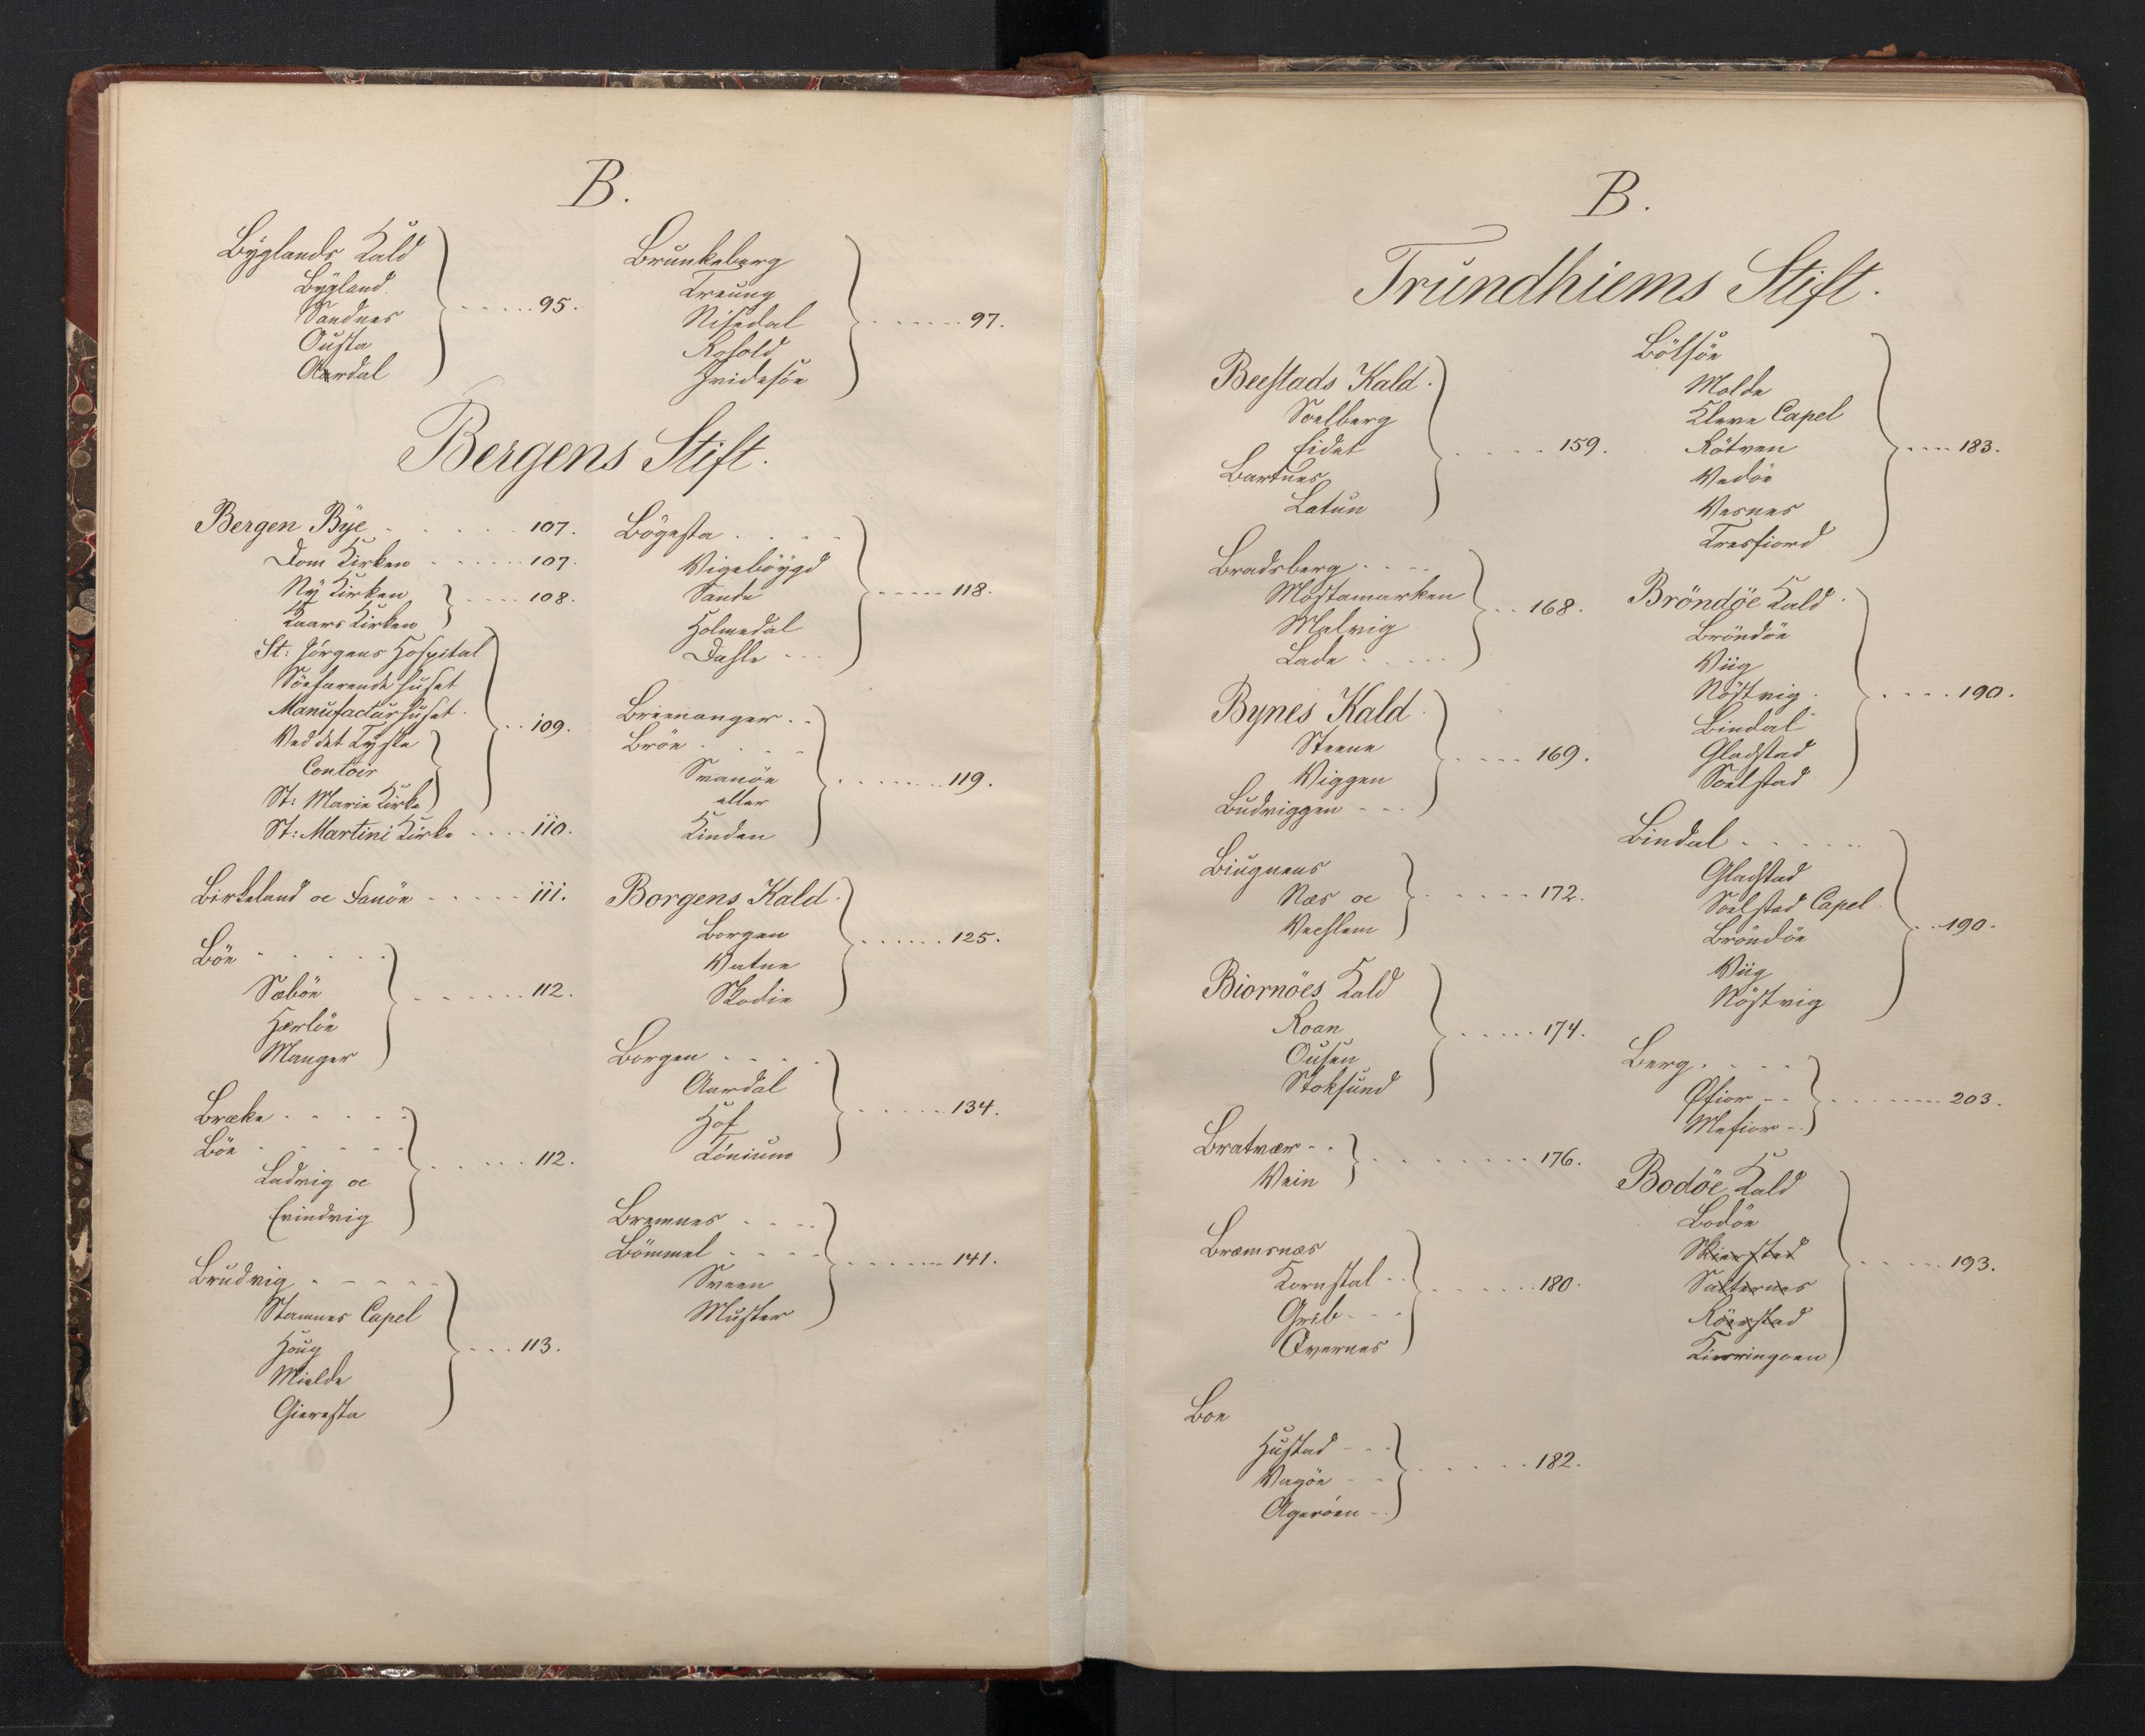 B.
Byglands Kald
Bygland.
Sandnes
Ousta
Aardal
95.
Brunkeberg
Treung
Nisedal
Hvidesöe
97.
Bergens Stift.
Bergen Bye 107.
Dom Kirken 107.
Ny Kirken
Kaars Kirken
108.
St: Jörgens Hospital
Söefarende huset
Manufacturhuset.
Ved det Tyske
Contoir
St: Marie Kirke
109.
St: Martini Kirke 110.
Birkeland oc Fanöe 111.
Böe
Sæböe
Herlöe
Manger
112.
Bræke
Böe
Ladvig oc
Evindvig
112.
Brudvig
Stamnes Capel
Houg
Mielde
Gieresta
113.
Bögesta
Vigeböygd
Sande
Holmedal
Dahle
118.
Bremanger
Bröe
Svanöe
eller
Kinden
119.
Borgens Kald.
Borgen
Vatne
Skodie
125.
Borgen
Aardal
Hof
Tönium
134.
Bremnes
Bömmel
Sveen
Muster
141.
B.
Trundhiems Stift.
Beestads Kald.
Soelberg
Eidet
Bartnes
Latun
159.
Bradsberg
Mostamarken
Malvig
Lade
168.
Bynes Kald.
Steene
Viggen
Budviggen
169.
Biugnens
Næs oc
172.
Biornöes Kald
Roan
Ousen
Stoksund
174.
Bratvær
Vein
176.
Bræmsnæs
Kornstal
Grib
Qvernes
180.
Boe
Hustad
Vagöe
Ageröen
182.
Bölsöe
Molde
Kleve Capel
Rötven
Vedöe
Vesnes
Tresfiord
183.
Bröndöe Kald.
Bröndöe
Viig
Nöstvig.
Bindal
Gladstad
Soelstad
190.
Bindal
Gladstad
Soelstad Capel.
Bröndöe
Viig
Nöstvig
190.
Berg
Öfior
Mefior
203.
Bodöe Kald
Bodöe
Skierstad
Salternes
Röerstad
Kierringöen
193.